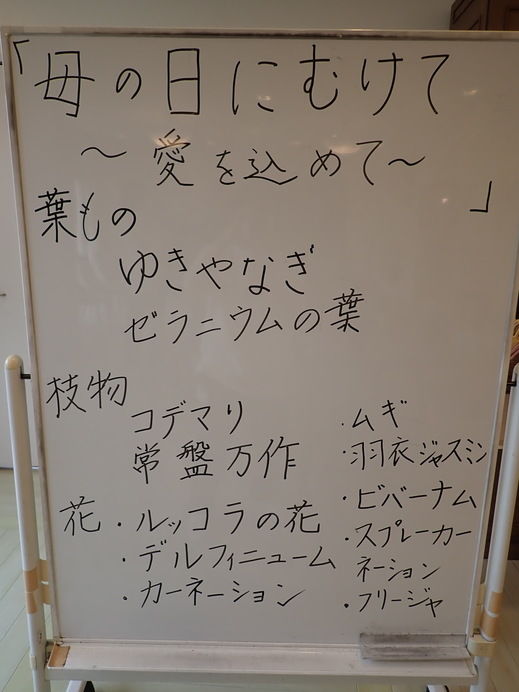 「母の日にむけて
～愛を込めて～
」
葉もの
ゆきやなぎ
ゼラニウムの葉
枝物
コデマリ
常盤万作
花・ルッコラの花
・デルフィニューム
・カーネーション
・ムギ
・羽衣ジャスミン
・ビバーナム
・スプレーカー
ネーション
・フリージャ